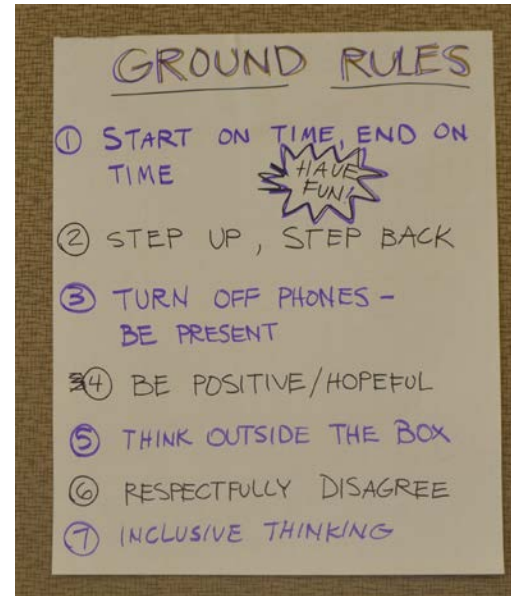 GROUND RULES
① START ON TIME, END ON
TIME
HAVE
FUN!
② STEP UP, STEP BACK
③ TURN OFF PHONES –
BE PRESENT
④ BE POSITIVE/HOPEFUL
⑤ THINK OUTSIDE THE BOX
⑥ RESPECTFULLY DISAGREE
⑦ INCLUSIVE THINKING